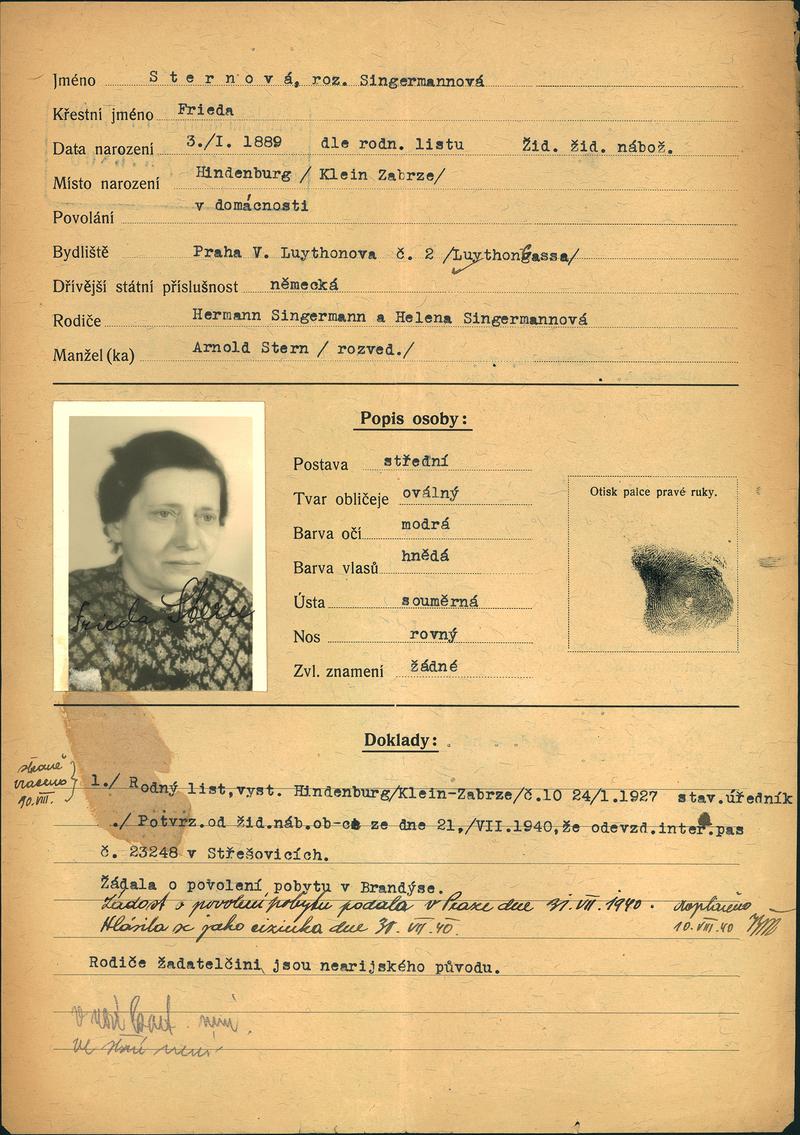 Jméno S t e r n o v á, roz. Singermannová
Křestní jméno Frieda
Data narození 3./I. 1889 dle rodn. listu Žid. žid. nábož.
Místo narození Hindenburg / Klein Zabrze/
Povolání v domácnosti
Bydliště Praha V. Luythonova č. 2 /Luythongassa/
Dřívější státní příslušnost německá
Rodiče Hermann Singermann a Helena Singermannová
Manžel (ka) Arnold Stern / rozved./
Popis osoby:
Postava střední
Tvar obličeje oválný
Barva očí modrá
Barva vlasů hnědá
Ústa souměrná
Nos rovný
Zvl. znamení žádné
Otisk palce pravé ruky.
Frieda Stern
Doklady:
straně
vráceno
10.VIII.
1./ Rodný list,vyst. Hindenburg/Klein-Zabrze/č.10 24/1.1927 stav.úředník
./ Potvrz.od žid.náb.ob-ce ze dne 21,/VII.1940,že odevzd.inter.pas
č. 23248 v Střešovicích.
Žádala o povolení pobytu v Brandýse.
Žádost o povolení pobytu podala v Praze dne 31.VII.1940.
Hlásila se jako cizinka dne 31. VII. 40.
doplaceno
10.VIII.40
Rodiče žadatelčini jsou nearijského původu.
není